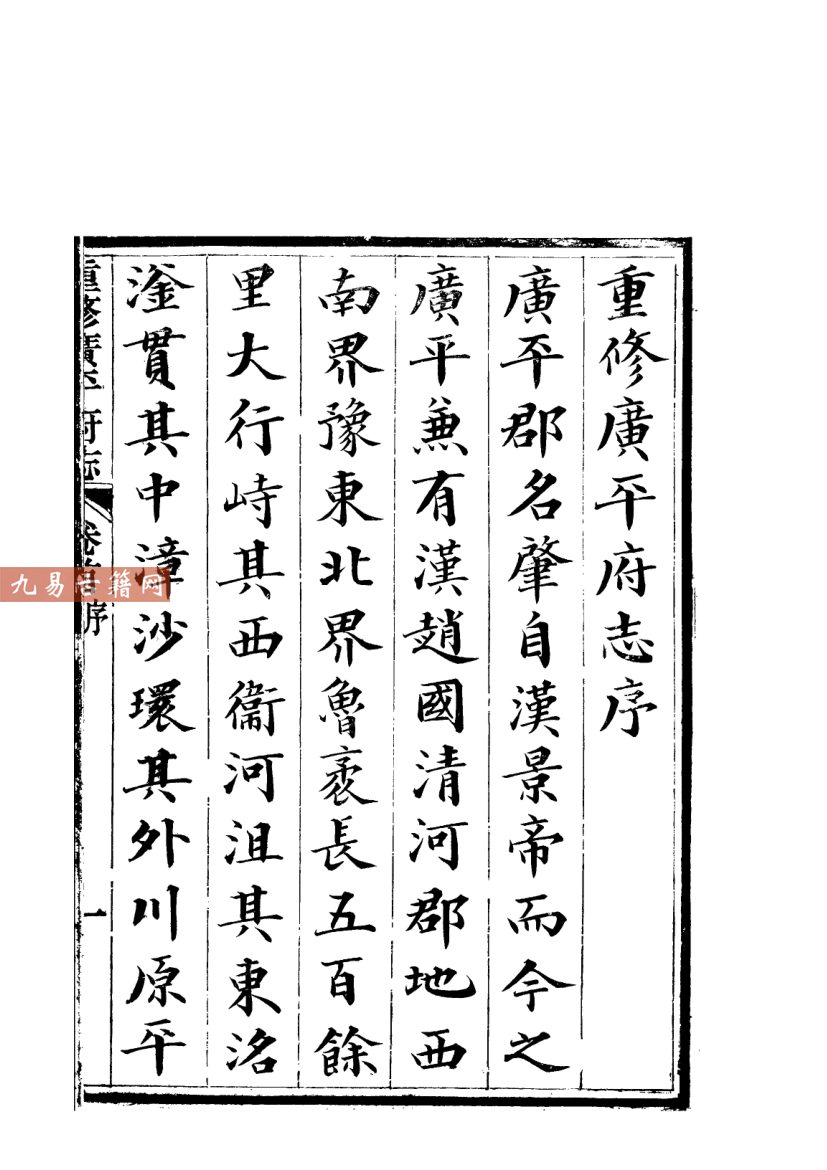 重修廣平府志序
廣平郡名肇自漢景帝而今之
廣平兼有漢趙國清河郡地西
南界豫東北界魯袤長五百餘
里大行峙其西衞河沮其東洺
滏貫其中漳沙環其外川原平
重修廣平府志 卷首序 一
九易古籍网